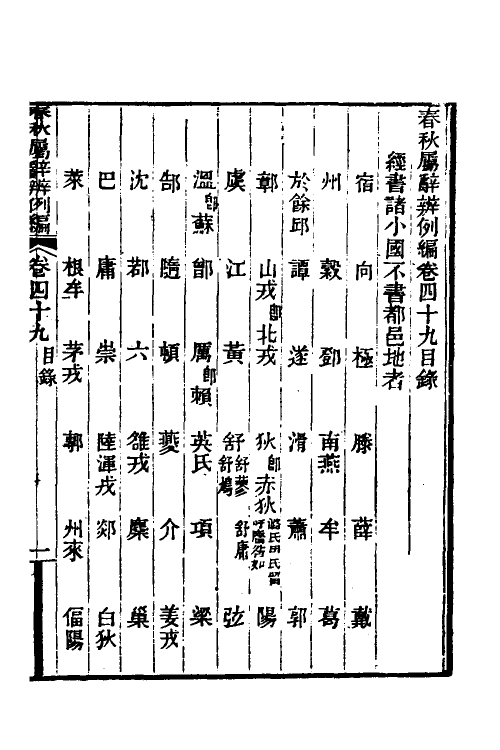 春秋屬辭辨例編卷四十九目錄
經書諸小國不書都邑地者
宿 向 極 滕 薛 戴
州 穀 鄧 南燕 牟 葛
於餘邱 譚 遂 滑 蕭 郭
鄣 山戎卽北戎 狄卽赤狄潞氏甲氏留吁廧咎如 陽
虞 江 黃 舒舒蓼舒鳩舒庸 弦
溫卽蘇 鄫 厲卽賴 英氏 項 梁
郜 隨 頓 夔 介 姜戎
沈 鄀 六 雒戎 麇 巢
巴 庸 崇 陸渾戎 郯 白狄
萊 根牟 茅戎 鄟 州來 偪陽
春秋屬辭辨例編 卷四十九 目錄 一